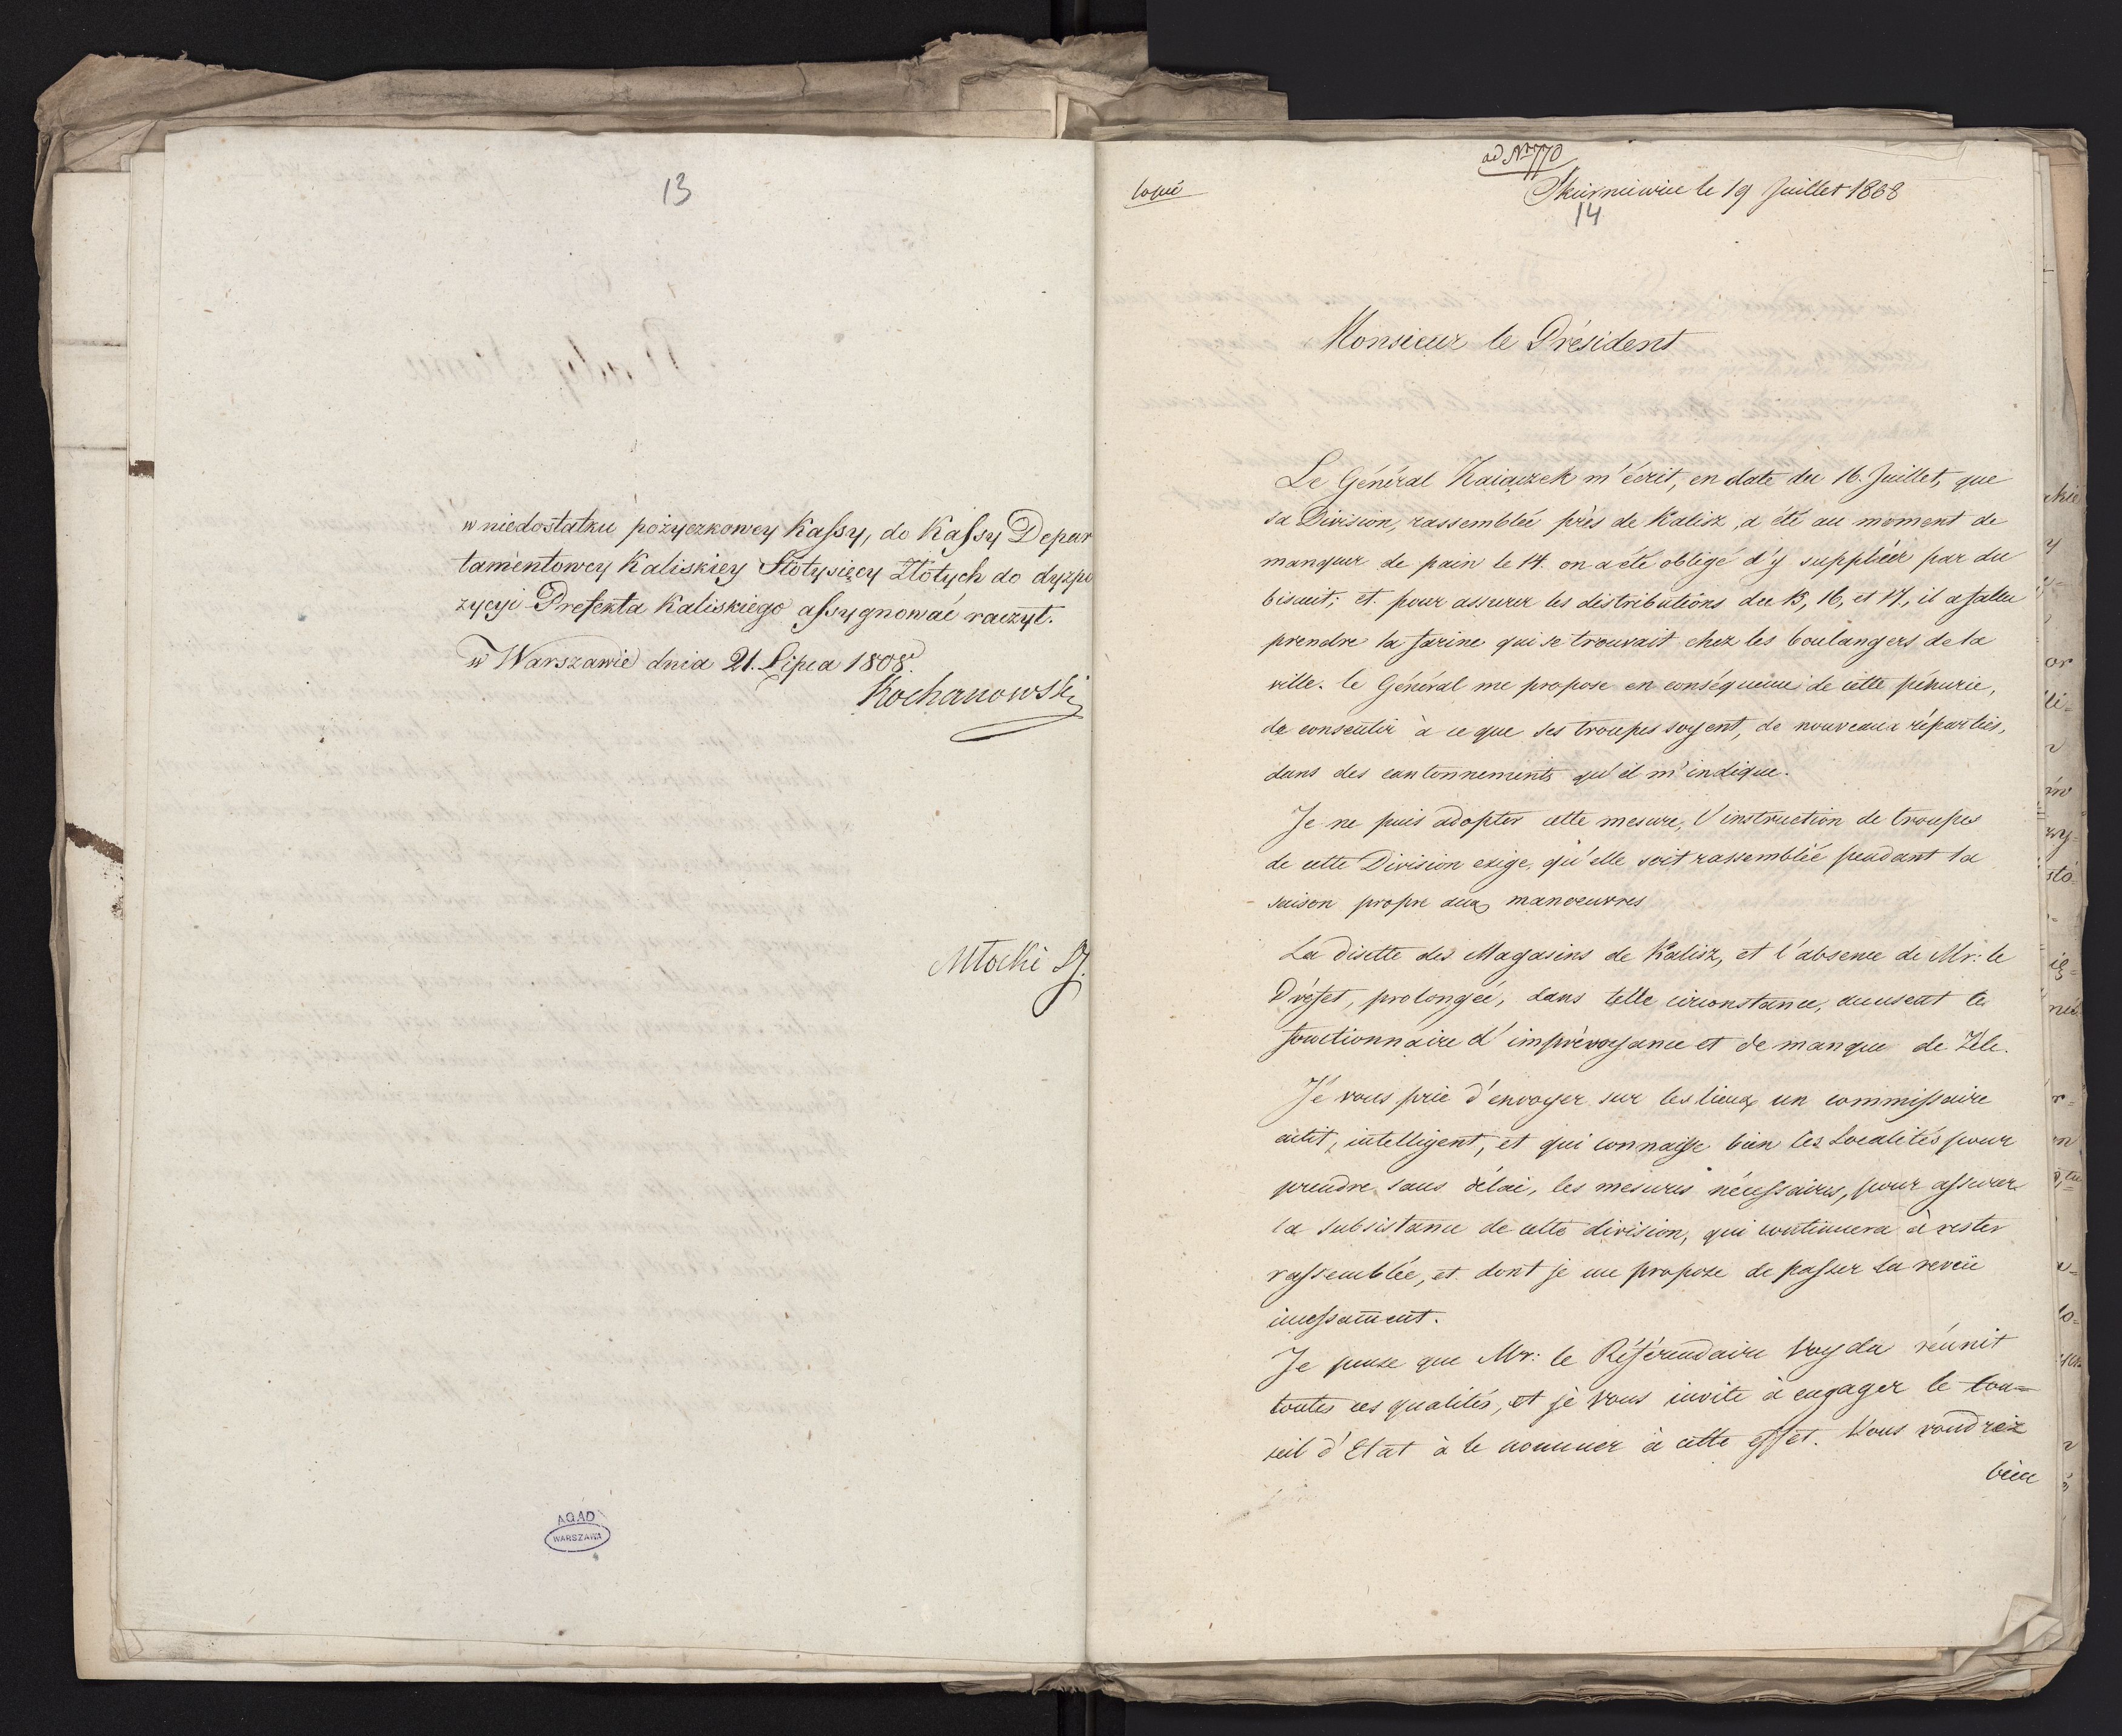 13
w niedostatku pożyczkowey Kassy, do Kassy Depar
tamentowey Kaliskiey Stotysięcy Złotych do dyzpo
zycyi Prefekta Kaliskiego assygnować raczył.
w Warszawie dnia 21. Lipca 1808.
Kochanowski
Młocki
AGAD
WARSZAWA
ad Nr 770
Copié
Skierniewice le 19 Juillet 1808
14
Monsieur le Président
Le Général Zaiączek m'écrit, en date du 16. Juillet, que
sa Division, rassemblée près de Kalisz, a été au moment de
manquer de pain le 14. on a été obligé d'y suppléer par du
biscuit; et pour assurer les distributions du 15, 16, et 17., il a fallu
prendre la farine qui se trouvait chez les boulangers de la
ville. le Général me propose en conséquence de cette pénurie,
de consentir à ce que ses troupes soyent, de nouveaux réparties,
dans des cantonnements qu'il m'indique.
Je ne puis adopter cette mesure, l'instruction de troupes
de cette Division exige, qu'elle soit rassemblée pendant la
saison propre aux manoeuvres
La disette des Magasins de Kalisz, et l'absence de Mr: le
Préfet, prolongée, dans telle circonstance, accusent le
fonctionnaire d'imprévoyance et de manque de Zèle.
Je vous prie d'envoyer sur les lieux un commissaire
actif, intelligent, et qui connaisse bien les Localités pour
prendre sans délai, les mesures nécessaires, pour assurer
la subsistance de cette division, qui continuera à rester
rassemblée, et dont je me propose de passer la revüe
incessament.
Je pense que Mr: le Référendaire Woyda réunit
toutes ces qualités, et je vous invite à engager le Con=
seil d'Etat à le nommer à cette effet. Vous voudrez
bien